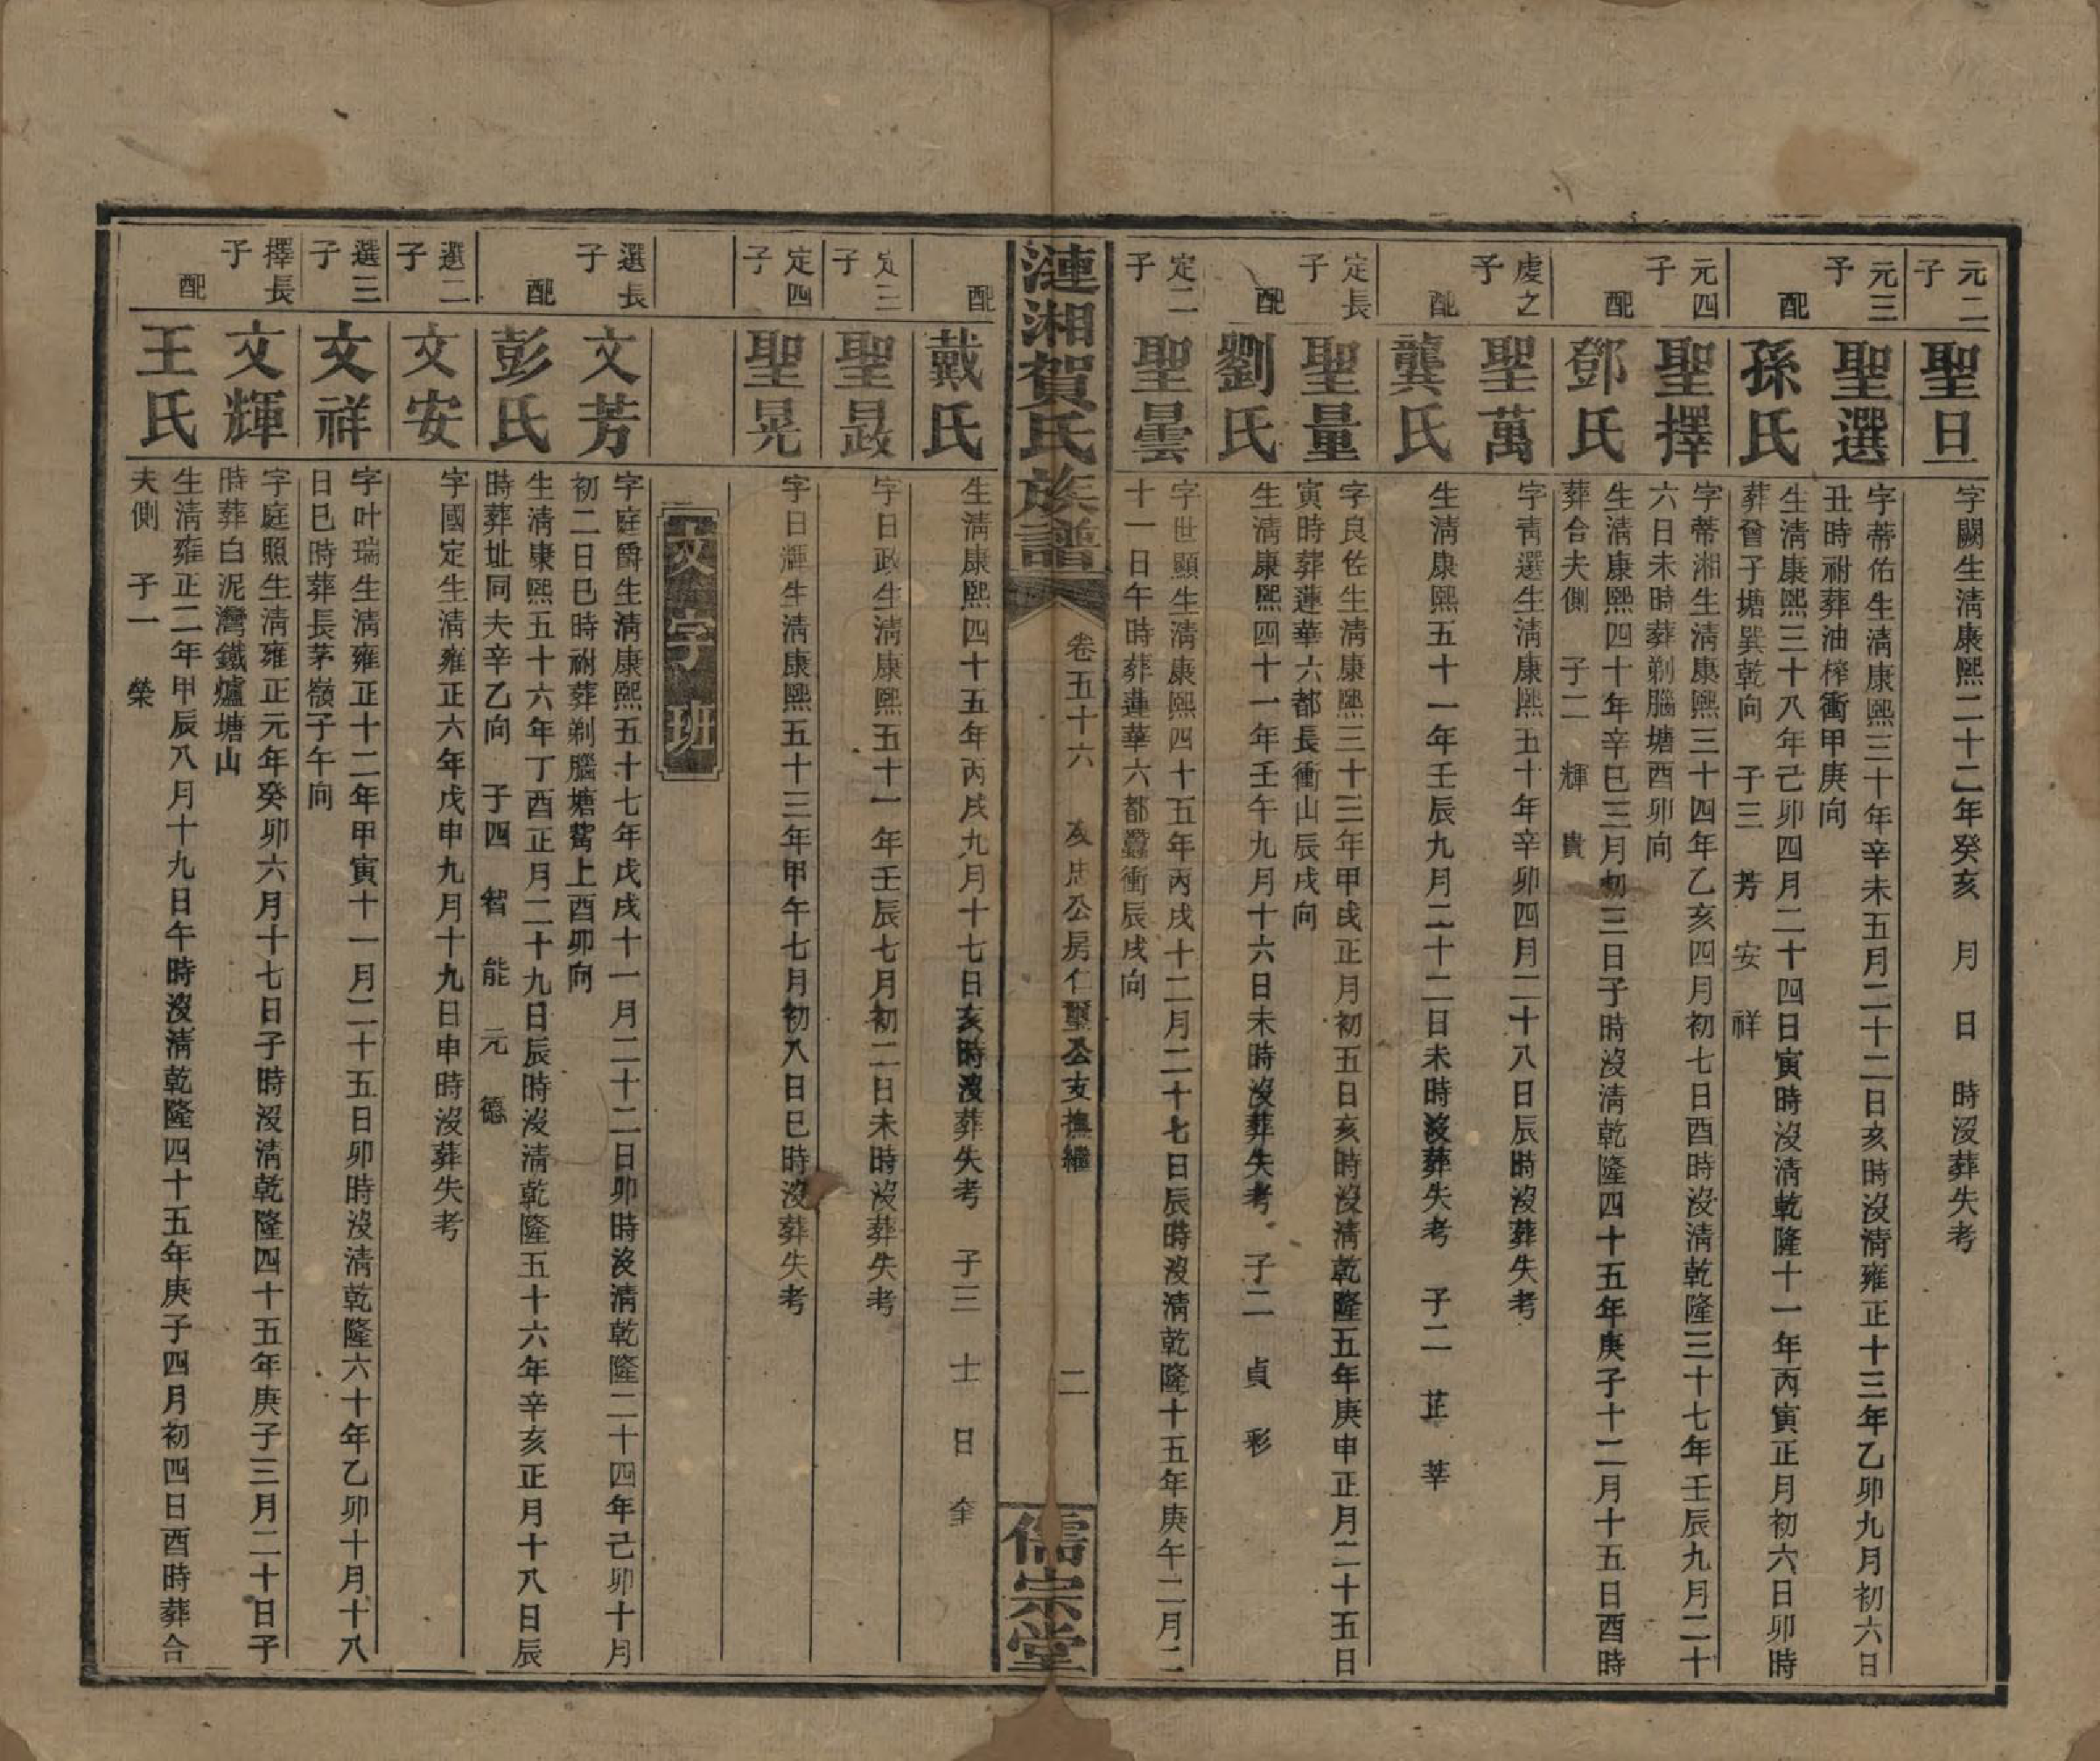 元二子
聖旦
字闕生淸康熙二十二年癸亥 月 日 時沒葬失考
元三子
聖選
字蒂佑生淸康熙三十年辛未五月二十二日亥時沒淸雍正十三年乙卯九月初六日
丑時祔葬油榨衝甲庚向
配
孫氏
生淸康熙三十八年己卯四月二十四日寅時沒淸乾隆十一年丙寅正月初六日卯時
葬曾子塘巽乾向 子三 芳 安 祥
元四子
聖擇
字蒂湘生淸康熙三十四年乙亥四月初七日酉時沒淸乾隆三十七年壬辰九月二十
六日未時葬剃腦塘酉卯向
配
鄧氏
生淸康熙四十年辛巳三月初三日子時沒淸乾隆四十五年庚子十二月十五日酉時
葬合夫側 子二 輝 貴
虔之子
聖萬
字靑選生淸康熙五十年辛卯四月二十八日辰時沒葬失考
配
龔氏
生淸康熙五十一年壬辰九月二十二日未時沒葬失考 子二 芷 莘
定長子
聖量
字良佐生淸康熙三十三年甲戌正月初五日亥時沒淸乾隆五年庚申正月二十五日
寅時葬蓮華六都長衝山辰戌向
配
劉氏
生淸康熙四十一年壬午九月十六日未時沒葬失考 子二 貞 彩
定二子
聖曇
字世顯生淸康熙四十五年丙戌十二月二十七日辰時沒淸乾隆十五年庚午二月二
十一日午時葬蓮華六都蠶衝辰戌向
漣湘賀氏族譜
卷五十六 友忠公房仁璽公支撫繼 二
儒宗堂
配
戴氏
生淸康熙四十五年丙戌九月十七日亥時沒葬失考 子三 士 日 奎
定三子
聖晸
字日政生淸康熙五十一年壬辰七月初二日未時沒葬失考
定四子
聖晃
字日輝生淸康熙五十三年甲午七月初八日巳時沒葬失考
文字班
選長子
文芳
字庭爵生淸康熙五十七年戊戌十一月二十二日卯時沒淸乾隆二十四年己卯十月
初二日巳時祔葬剃腦塘菴上酉卯向
配
彭氏
生淸康熙五十六年丁酉正月二十九日辰時沒淸乾隆五十六年辛亥正月十八日辰
時葬址同夫辛乙向 子四 智 能 元 德
選二子
文安
字國定生淸雍正六年戊申九月十九日申時沒葬失考
選三子
文祥
字叶瑞生淸雍正十二年甲寅十一月二十五日卯時沒淸乾隆六十年乙卯十月十八
日巳時葬長茅嶺子午向
擇長子
文輝
字庭照生淸雍正元年癸卯六月十七日子時沒淸乾隆四十五年庚子三月二十日子
時葬白泥灣鐵爐塘山
配
王氏
生淸雍正二年甲辰八月十九日午時沒淸乾隆四十五年庚子四月初四日酉時葬合
夫側 子一 榮